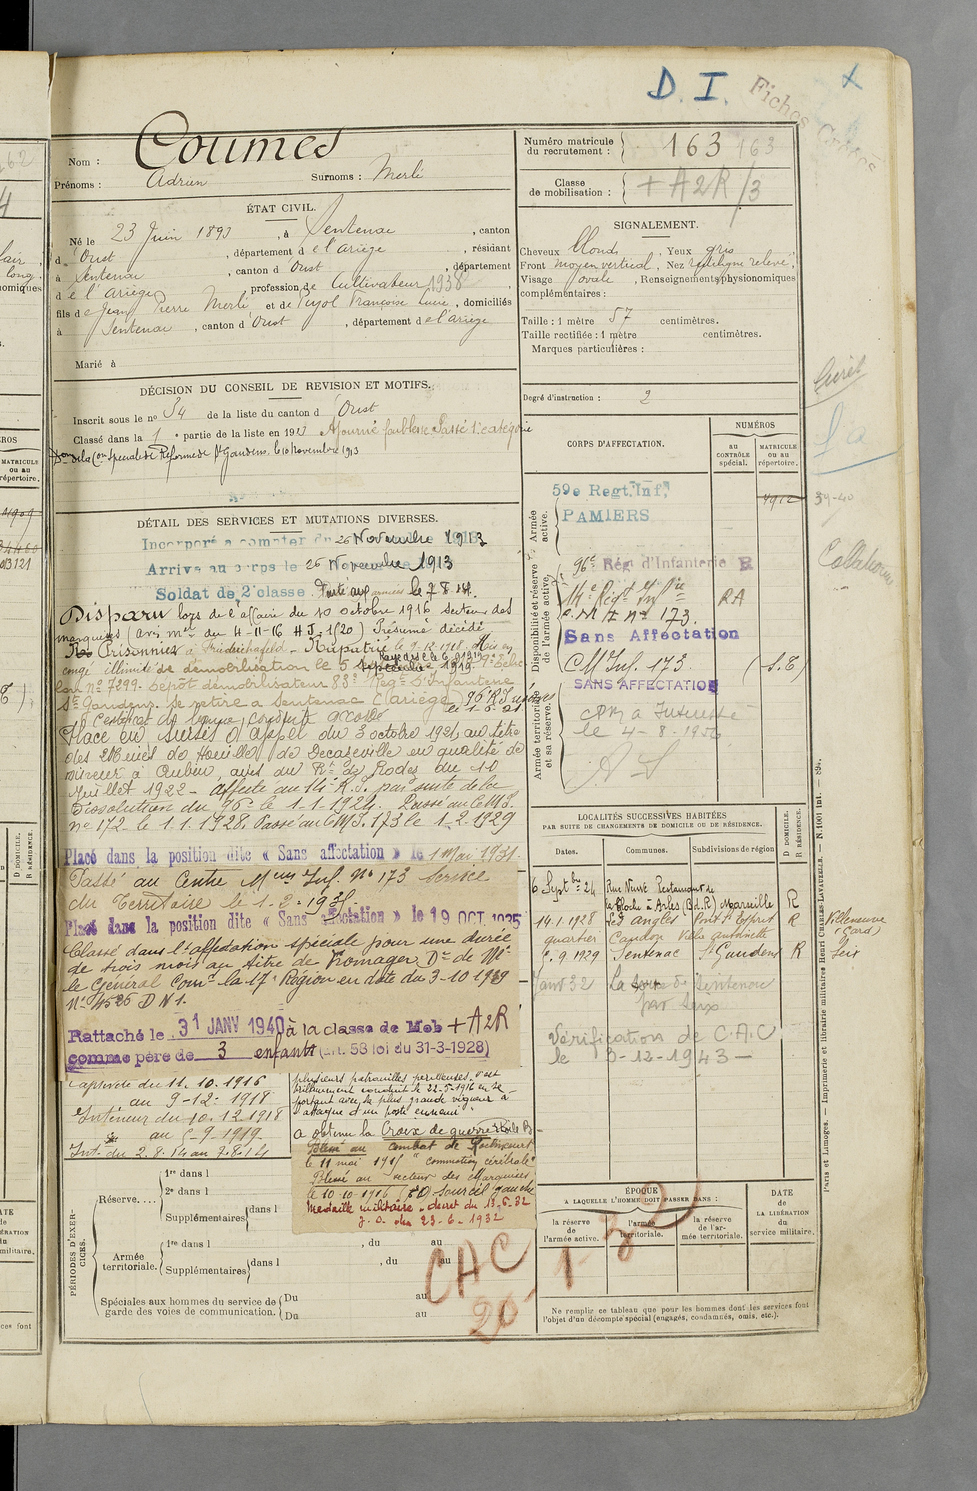 D. I.
Fiches
Nom : Coumes
Prénoms : Adrien Surnoms : Merli
ÉTAT CIVIL.
Né le 23 Juin 1893, à Sentenac, canton
d'Oust, département de l'Ariège, résidant
à Sentenac, canton d'Oust, département
de l'Ariège, profession de Cultivateur 1938
fils de Jean Pierre Merli et de Pujol Françoise Lucie, domiciliés
à Sentenac, canton d'Oust, département de l'Ariège
Marié à
DÉCISION DU CONSEIL DE REVISION ET MOTIFS.
Inscrit sous le no 54 de la liste du canton d'Oust
Classé dans la 1e partie de la liste en 1913 Ajourné faiblesse Passé 1e catégorie
Don de la Con Spéciale de Réforme de St Gaudens le 10 Novembre 1913
DÉTAIL DES SERVICES ET MUTATIONS DIVERSES.
Incorporé a compter du 26 Novembre 1913
Arrivé au corps le 26 Novembre 1913
Soldat de 2e classe. Parti aux armées le 7.8.14.
Disparu lors de l'affaire du 10 octobre 1916 secteur des
marquises (avis mel du 4-11-16 H.J. 1/20) Présumé décédé
Prisonnier à Friedrichsfeld - Rapatrié le 9.12.1918. Mis en
congé illimité de démobilisation le 5 Septembre 1919 9e Echelon
no 7299. Dépôt démobilisateur 83e Régt d'Infanterie
St Gaudens. Se retire à Sentenac (Ariège) 96e R.I.
le 1-6-21
Certificat de bonne conduite accordé
Placé en sursis d'appel du 3 octobre 1921 au titre
des Mines de Houille de Decazeville en qualité de
mineur à Aubin, avis du Rt de Rodez du 10
Juillet 1922 - Affecté au 14e R.I. par suite de la
Dissolution du 96e le 1.1.1924. Passé au C.M.I.
no 172 le 1.1.1928. Passé au C.M.I. 173 le 1-2-1929
Placé dans la position dite « Sans affectation » le 1 Mai 1931.
Passé au Centre Meur Inf. No 173 Service
du Territoire le 1-2-1935.
Placé dans la position dite « Sans affectation » le 19 OCT 1935
Classé dans l'affectation spéciale pour une durée
de trois mois au titre de Fromager Dn de Mr
le Général Comt la 17e Région en date du 3-10-1939
No 4586 D N 1.
Rattaché le 31 JANV 1940 à la classe de Mob + A2R
comme père de 3 enfants (art. 58 loi du 31-3-1928)
Captivité du 11.10.1916
au 9-12-1918
Intérieur du 10.12.1918
au 5-9-1919
Int. du 2.8.14 au 7.8.14
plusieurs patrouilles périlleuses. S'est
brillamment conduit le 22-5-1916 en se
portant avec la plus grande vigueur à
l'attaque d'un poste ennemi.
A obtenu la Croix de guerre
Blessé au combat de Roclincourt
le 11 mai 1915 "commotion cérébrale"
Blessé au secteur des Marquises
le 10-10-1916 sourcil gauche
Médaille militaire, décret du 13-6-32
J.O. du 23-6-1932
PÉRIODES D'EXERCICES.
Réserve....
1re dans l
2e dans l
Supplémentaires dans l
Armée territoriale.
1re dans l , du au
Supplémentaires dans l , du au
Spéciales aux hommes du service de garde des voies de communication.
Du au
Du au
CAC
20-1-32
Numéro matricule du recrutement : 163 163
Classe de mobilisation : + A2R /3
SIGNALEMENT.
Cheveux blond, Yeux gris
Front moyen vertical, Nez rectiligne relevé,
Visage ovale, Renseignements physionomiques
complémentaires :
Taille : 1 mètre 57 centimètres.
Taille rectifiée : 1 mètre centimètres.
Marques particulières :
Degré d'instruction : 2
CORPS D'AFFECTATION.
NUMÉROS
au CONTRÔLE spécial.
MATRICULE ou au répertoire.
Armée active.
59e Regt. Inf.
PAMIERS
4912
39-40
Disponibilité et réserve de l'armée active.
96e Rég. d'Infanterie R
14e Régt Infie RA
C.M.I. no 173.
Sans Affectation
C M Inf. 173. (S.T)
SANS AFFECTATION
Armée territoriale et sa réserve.
le 4-8-1936
LOCALITÉS SUCCESSIVES HABITÉES
PAR SUITE DE CHANGEMENTS DE DOMICILE OU DE RÉSIDENCE.
Dates. Communes. Subdivisions de région D DOMICILE. R RÉSIDENCE.
6 Septbre 24 Rue Neuve
à Arles (B.d.R.) Marseille R
14.1.1928 Les Angles Pont St Esprit R Villeneuve (Gard)
quartier Candon Villa Antoinette
6.9.1929 Sentenac St Gaudens R Seix
Janv 32 Sentenac
par Seix
Vérification de C.A.C
le 3-12-1943 —
ÉPOQUE
A LAQUELLE L'HOMME DOIT PASSER DANS :
la réserve de l'armée active.
l'armée territoriale.
la réserve de l'armée territoriale.
DATE de LA LIBÉRATION du service militaire.
Ne remplir ce tableau que pour les hommes dont les services font
l'objet d'un décompte spécial (engagés, condamnés, omis, etc.).
Paris et Limoges. — Imprimerie et librairie militaires Henri CHARLES-LAVAUZELLE.